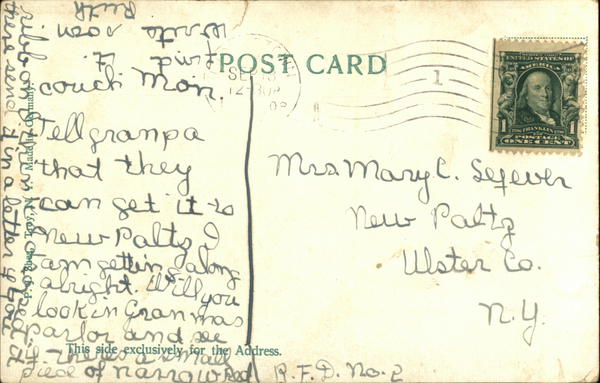 POST CARD
SE
12-30P
1
UNITED STATES OF AMERICA
1 FRANKLIN 1
POSTAGE
ONE CENT
couch Mon.
Tell granpa
that they
can get it to
New Paltz I
am getting along
alright. Will you
look in Granmas
parlor and see
if theres a small
piece of narrow red
ribbon
there send it in a letter if you
find it
wrote soon
Ruth
Mrs Mary C. Lefever
New Paltz
Ulster Co.
N.Y.
R.F.D. No. 2
This side exclusively for the Address.
Made in Germany